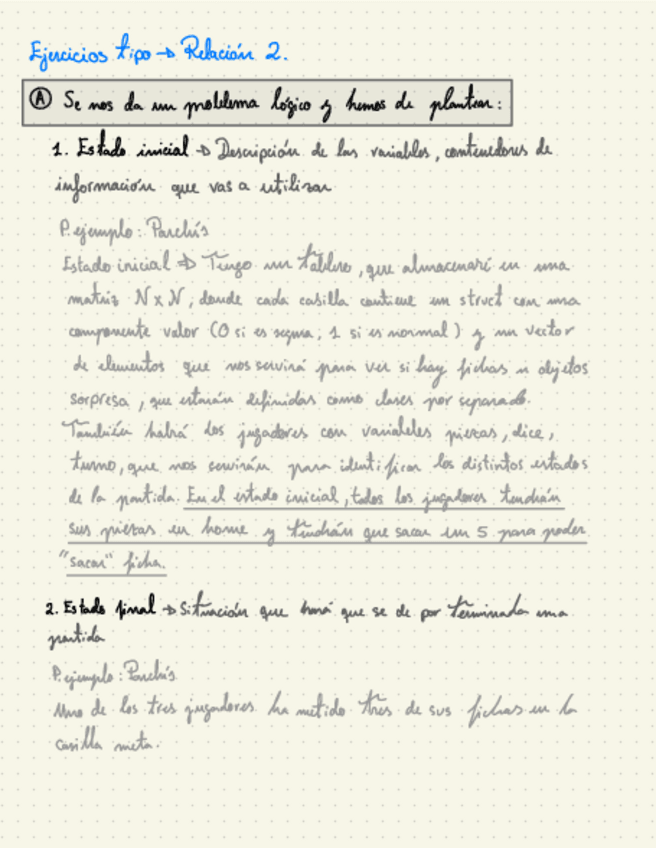 Ejercicios tipo → Relación 2.
Ⓐ Se nos da un problema lógico y hemos de plantear:
1. Estado inicial → Descripción de las variables, contenedores de
información que vas a utilizar
P. ejemplo: Parchís
Estado inicial → Tengo un tablero, que almacenaré en una
matriz N x N, donde cada casilla contiene un struct con una
componente valor (0 si es segura, 1 si es normal) y un vector
de elementos que nos servirá para ver si hay fichas u objetos
sorpresa, que estarán definidas como clases por separado.
También habrá los jugadores con variables piezas, dice,
turno, que nos servirán para identificar los distintos estados
de la partida. En el estado inicial, todos los jugadores tendrán
sus piezas en home y tendrán que sacar un 5 para poder
"sacar" ficha.
2. Estado final → Situación que hará que se de por terminada una
partida
P. ejemplo: Parchís
Uno de los tres jugadores ha metido tres de sus fichas en la
casilla meta.